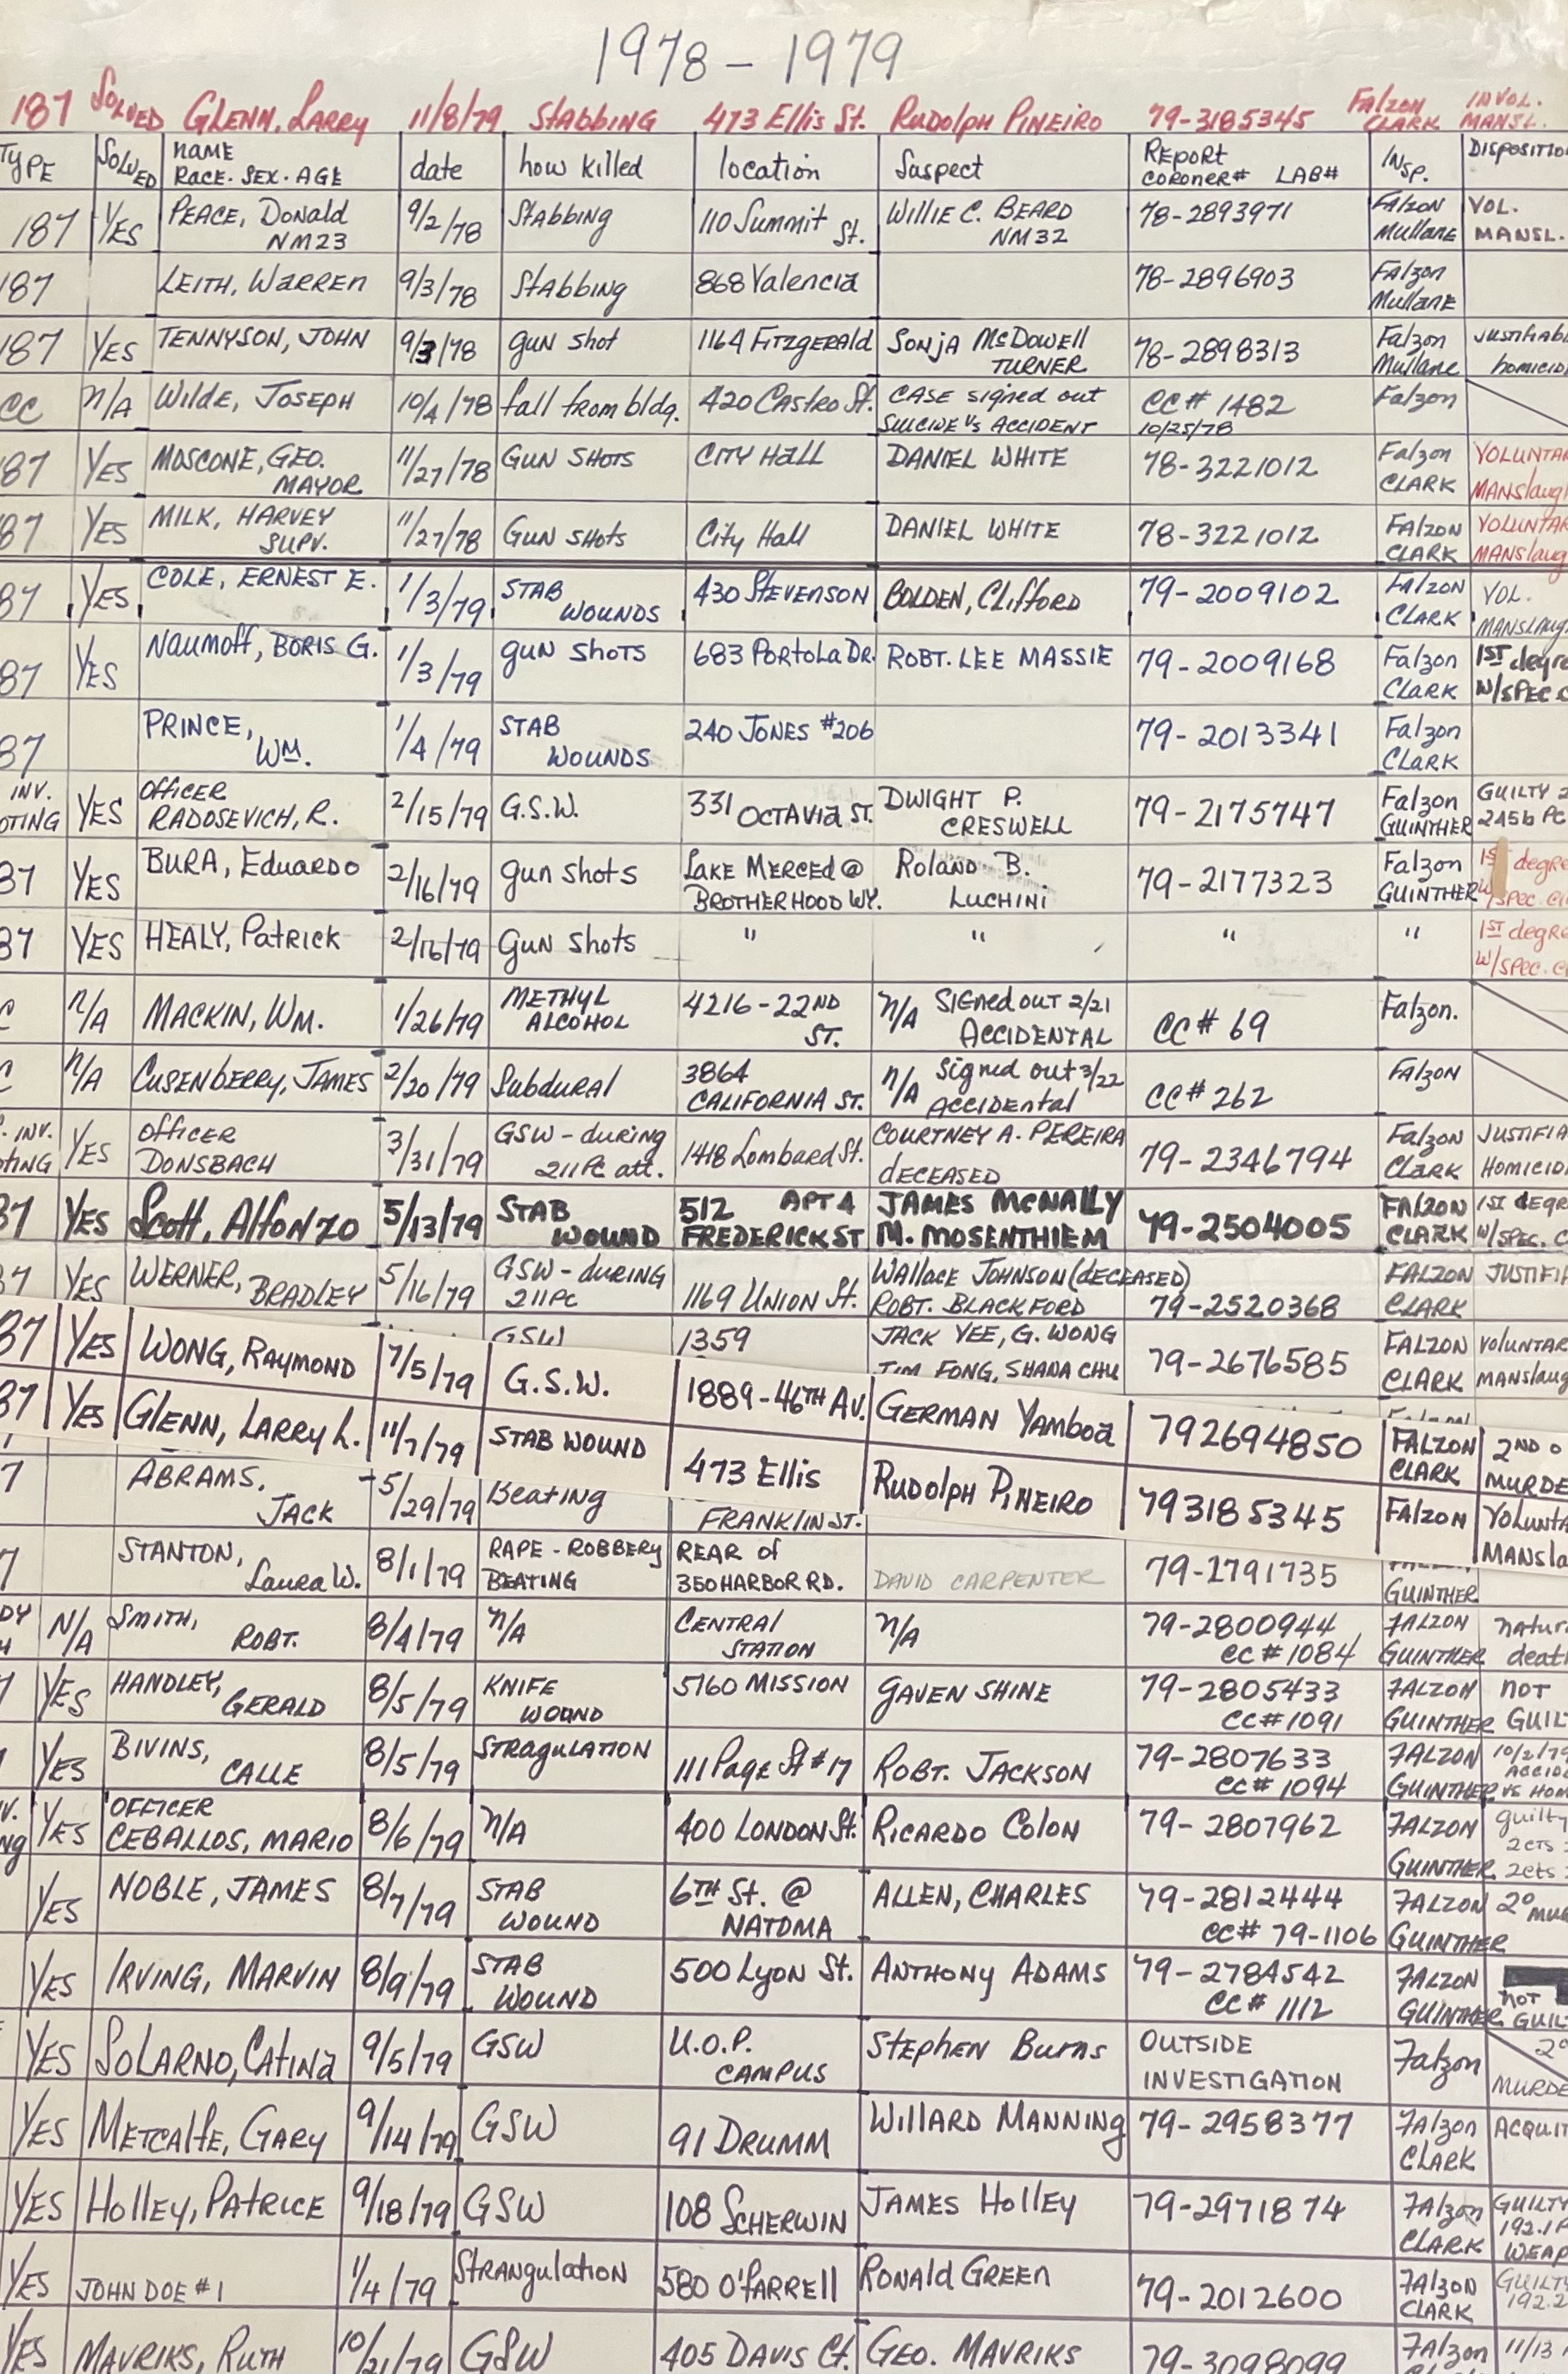 1978 - 1979
187 SOLVED GLENN, LARRY 11/8/79 STABBING 473 Ellis St. RUDOLPH PINEIRO 79-3185345 FALZON CLARK INVOL. MANSL.
TYPE SOLVED NAME RACE. SEX. AGE date how killed location Suspect REPORT CORONER# LAB# INSP. DISPOSITIO
187 YES PEACE, Donald NM23 9/2/78 Stabbing 110 Summit St. WILLIE C. BEARD NM32 78-2893971 FALZON Mullane VOL. MANSL.
187 LEITH, WARREN 9/3/78 Stabbing 868 Valencia 78-2896903 Falzon Mullane
187 YES TENNYSON, JOHN 9/3/78 gun shot 1164 FITZGERALD SONJA McDOWELL TURNER 78-2898313 Falzon Mullane JUSTIFIAB homicid
CC n/A WILDE, JOSEPH 10/4/78 fall from bldg. 420 Castro St. CASE signed out SUICIDE Vs ACCIDENT CC# 1482 10/25/78 Falzon
87 YES MOSCONE, GEO. MAYOR 11/27/78 GUN SHOTS CITY Hall DANIEL WHITE 78-3221012 Falzon CLARK VOLUNTAR MANSlaug
87 YES MILK, HARVEY SUPV. 11/27/78 GUN SHOTS City Hall DANIEL WHITE 78-3221012 FALZON CLARK VOLUNTAR MANSlaug
87 YES COLE, ERNEST E. 1/3/79 STAB WOUNDS 430 STEVENSON BOLDEN, Clifford 79-2009102 FALZON CLARK VOL. MANSLAUG
87 YES NAUMOFF, BORIS G. 1/3/79 gun SHOTS 683 PORTOLA DR. ROBT. LEE MASSIE 79-2009168 Falzon CLARK 1ST degre W/SPEC C
87 PRINCE, WM. 1/4/79 STAB WOUNDS 240 JONES #206 79-2013341 Falzon CLARK
INV. OTING YES OFFICER RADOSEVICH, R. 2/15/79 G.S.W. 331 OCTAVIA ST. DWIGHT P. CRESWELL 79-2175747 Falzon GUINTHER GUILTY 2 245b PC
87 YES BURA, Eduardo 2/16/79 gun shots LAKE MERCED @ BROTHERHOOD WY. Roland B. LUCHINI 79-2177323 Falzon GUINTHER 1ST degre W/SPEC. CI
87 YES HEALY, Patrick 2/16/79 Gun shots " " " " 1ST degre W/SPEC. CI
C n/A MACKIN, WM. 1/26/79 METHYL ALCOHOL 4216-22ND ST. n/A SIGNED OUT 2/21 ACCIDENTAL CC# 69 Falzon.
C n/A CUSENBERRY, JAMES 2/20/79 Subdural 3864 CALIFORNIA ST. n/A Signed out 3/22 Accidental CC# 262 Falzon
. INV. OTING YES OFFICER DONSBACH 3/31/79 GSW - during 211 PC att. 1418 Lombard St. COURTNEY A. PEREIRA deceased 79-2346794 Falzon Clark JUSTIFIA Homicid
87 YES Scott, Alfonzo 5/13/79 STAB WOUND 512 APT 4 FREDERICK ST JAMES McNALLY M. MOSENTHIEM 79-2504005 FALZON CLARK 1ST DEGR W/SPEC. C
87 YES WERNER, BRADLEY 5/16/79 GSW - during 211PC 1169 UNION St. WALLACE JOHNSON (DECEASED) ROBT. BLACKFORD 79-2520368 FALZON CLARK JUSTIFI
GSW 1359 JACK YEE, G. WONG TIM FONG, SHANA CHU 79-2676585 FALZON CLARK VOLUNTAR MANSlaug
87 YES WONG, RAYMOND 7/5/79 G.S.W. 1889-46TH AV. GERMAN Yamboa 792694850 FALZON CLARK 2ND o MURDE
87 YES GLENN, LARRY L. 11/7/79 STAB WOUND 473 Ellis RUDOLPH PINEIRO 793185345 FALZON Volunta MANSla
7 ABRAMS, JACK 5/29/79 Beating FRANKLIN ST.
7 STANTON, Laura W. 8/1/79 RAPE - ROBBERY BEATING REAR of 350 HARBOR RD. DAVID CARPENTER 79-2791735 GUINTHER
DY H N/A SMITH, ROBT. 8/4/79 n/A CENTRAL STATION n/A 79-2800944 CC# 1084 FALZON GUINTHER natur death
7 YES HANDLEY, GERALD 8/5/79 KNIFE WOUND 5160 MISSION GAVEN SHINE 79-2805433 CC# 1091 FALZON GUINTHER NOT GUIL
YES BIVINS, CALLE 8/5/79 STRAGULATION 111 Page St #17 ROBT. JACKSON 79-2807633 CC# 1094 FALZON GUINTHER 10/2/79 ACCID VS HOM
V. NG YES OFFICER CEBALLOS, MARIO 8/6/79 n/A 400 LONDON St. RICARDO COLON 79-2807962 FALZON GUINTHER guilty 2CTS 2cts
YES NOBLE, JAMES 8/7/79 STAB WOUND 6TH St. @ NATOMA ALLEN, CHARLES 79-2812444 CC# 79-1106 FALZON GUINTHER 2° MU
YES IRVING, MARVIN 8/9/79 STAB WOUND 500 Lyon St. ANTHONY ADAMS 79-2784542 CC# 1112 FALZON GUINTHER NOT GUILT
YES SOLARNO, CATINA 9/5/79 GSW U.O.P. CAMPUS STEPHEN BURNS OUTSIDE INVESTIGATION Falzon 2° MURDE
YES METCALFE, GARY 9/14/79 GSW 91 DRUMM WILLARD MANNING 79-2958377 FAlzon CLARK ACQUIT
YES HOLLEY, PATRICE 9/18/79 GSW 108 SCHERWIN JAMES HOLLEY 79-2971874 FAlzon CLARK GUILTY 192.1P WEAP
YES JOHN DOE #1 1/4/79 STRANGULATION 580 O'FARRELL RONALD GREEN 79-2012600 FAlzon CLARK GUILTY 192.2
YES MAVRIKS, RUTH 10/21/79 GSW 405 DAVIS Ct. GEO. MAVRIKS 79-3098099 FAlzon 11/13